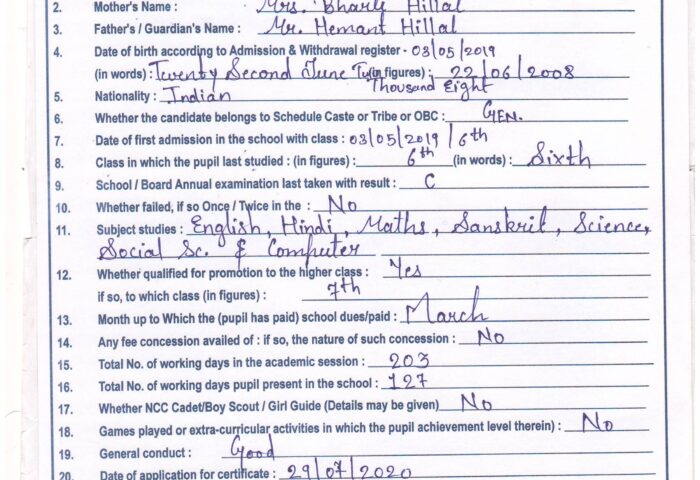 2. Mother's Name : Mrs. Bharti Hillal
3. Father's / Guardian's Name : Mr. Hemant Hillal
4. Date of birth according to Admission & Withdrawal register - 03/05/2019
(in words) : Twenty Second June Two (in figures) : 22/06/2008
Thousand Eight
5. Nationality : Indian
6. Whether the candidate belongs to Schedule Caste or Tribe or OBC : GEN.
7. Date of first admission in the school with class : 03/05/2019 / 6th
8. Class in which the pupil last studied : (in figures) : 6th (in words) : Sixth
9. School / Board Annual examination last taken with result : C
10. Whether failed, if so Once / Twice in the : No
11. Subject studies : English, Hindi, Maths, Sanskrit, Science,
Social Sc. & Computer
12. Whether qualified for promotion to the higher class : Yes
if so, to which class (in figures) : 7th
13. Month up to Which the (pupil has paid) school dues/paid : March
14. Any fee concession availed of : if so, the nature of such concession : No
15. Total No. of working days in the academic session : 203
16. Total No. of working days pupil present in the school : 127
17. Whether NCC Cadet/Boy Scout / Girl Guide (Details may be given) No
18. Games played or extra-curricular activities in which the pupil achievement level therein) : No
19. General conduct : Good
20. Date of application for certificate : 29/07/2020